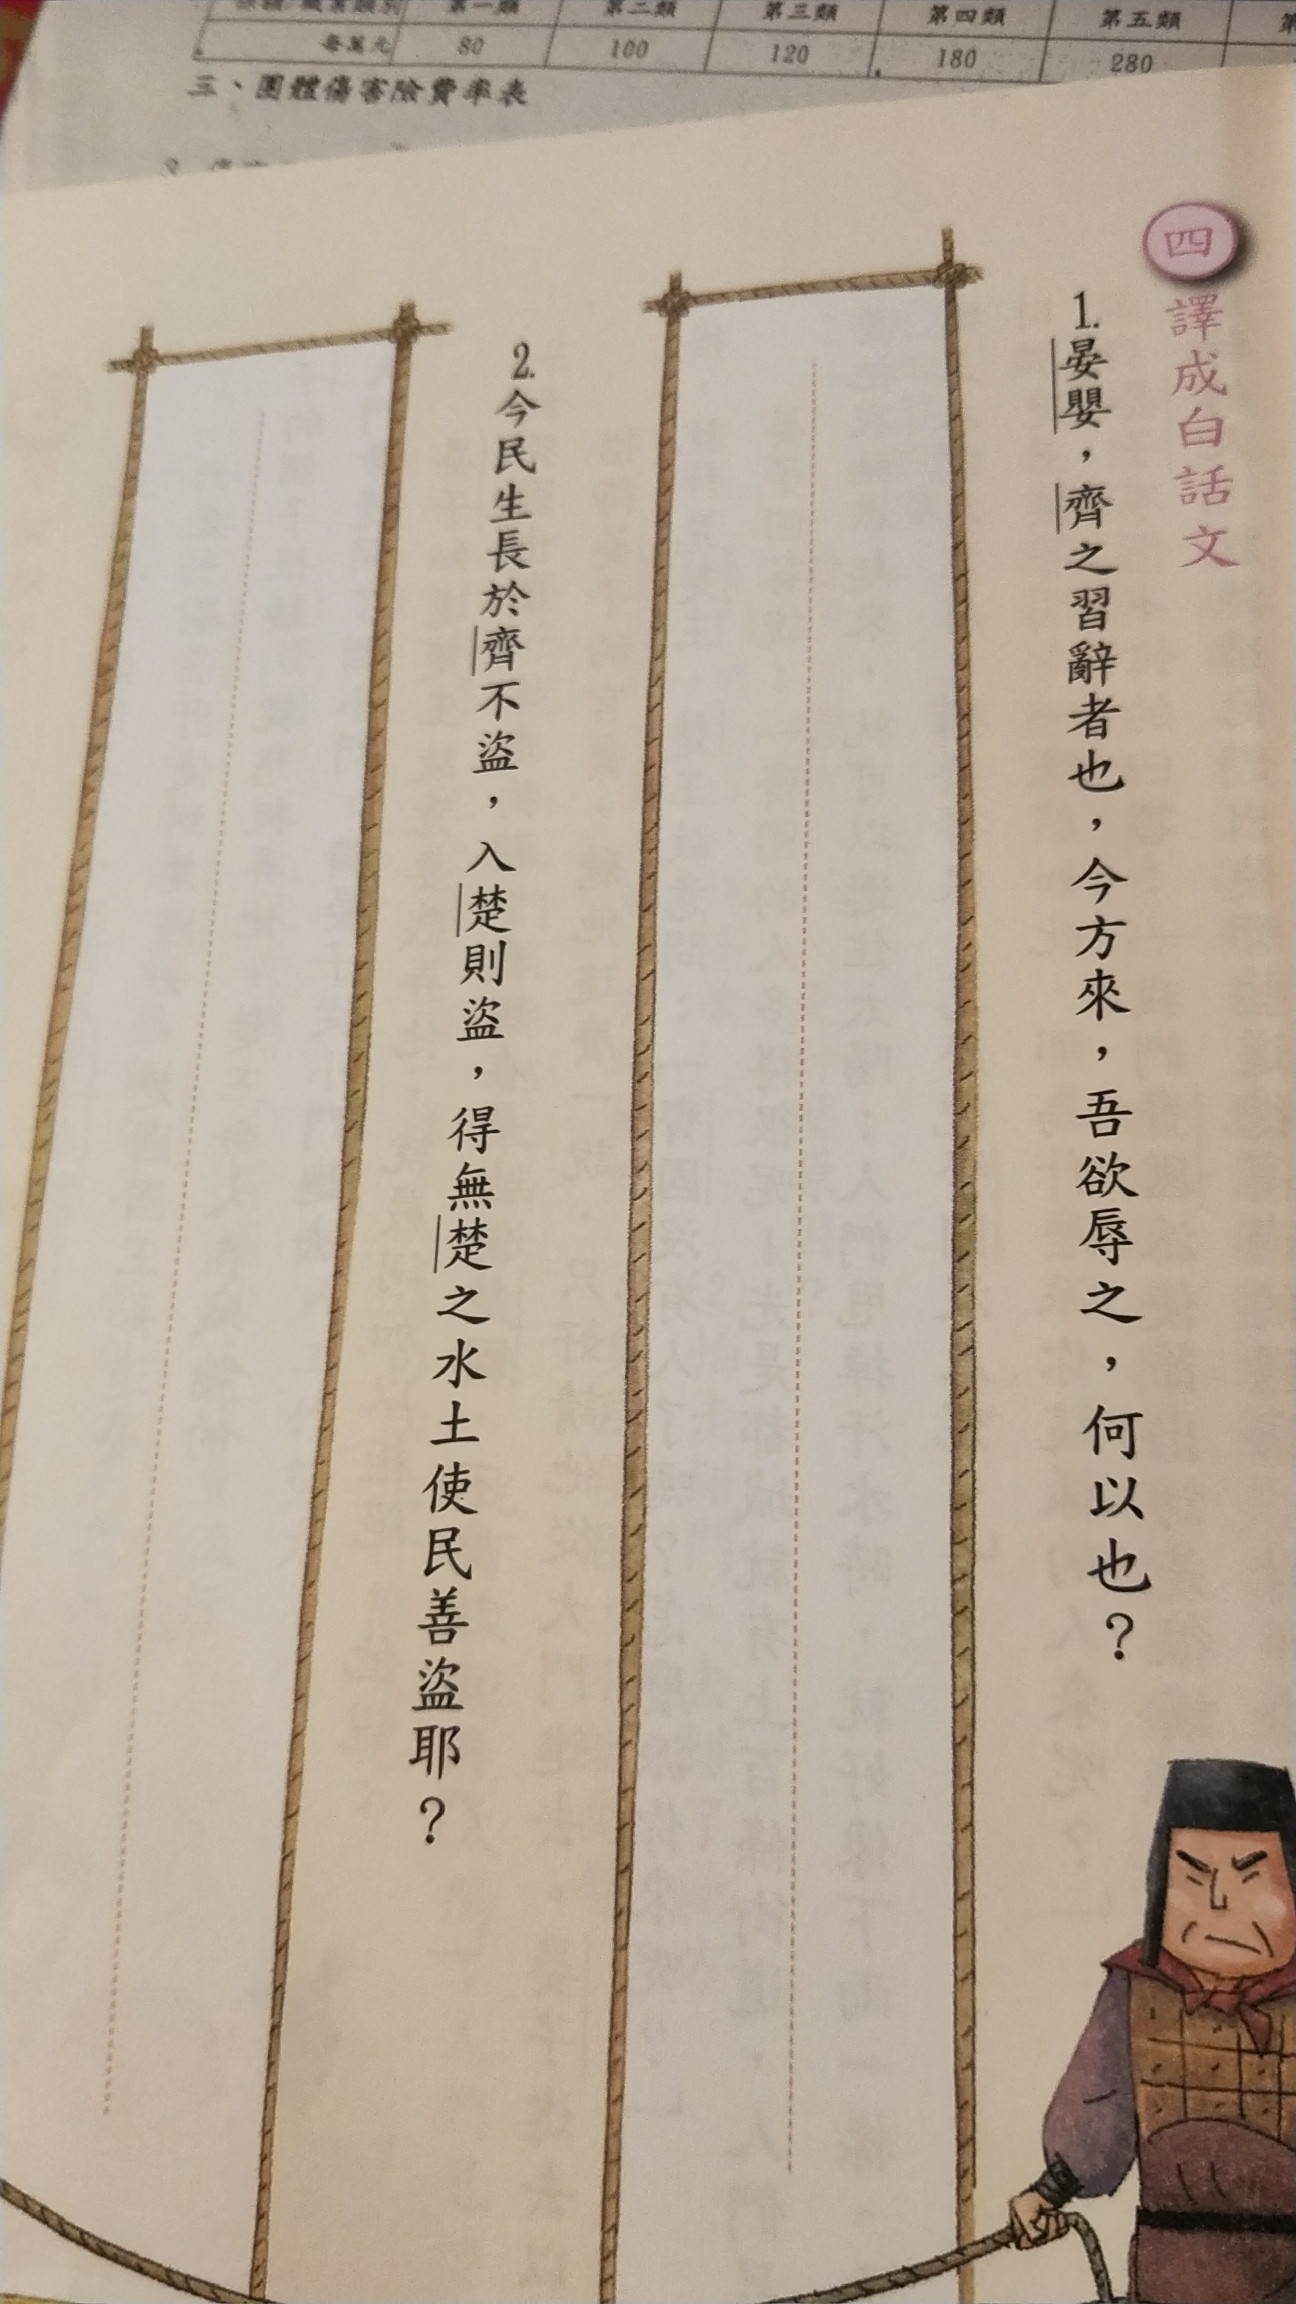 第一類 第二類 第三類 第四類 第五類
每萬元 80 100 120 180 280
三、團體傷害險費率表
四 譯成白話文
1.晏嬰，齊之習辭者也，今方來，吾欲辱之，何以也？
2.今民生長於齊不盜，入楚則盜，得無楚之水土使民善盜耶？